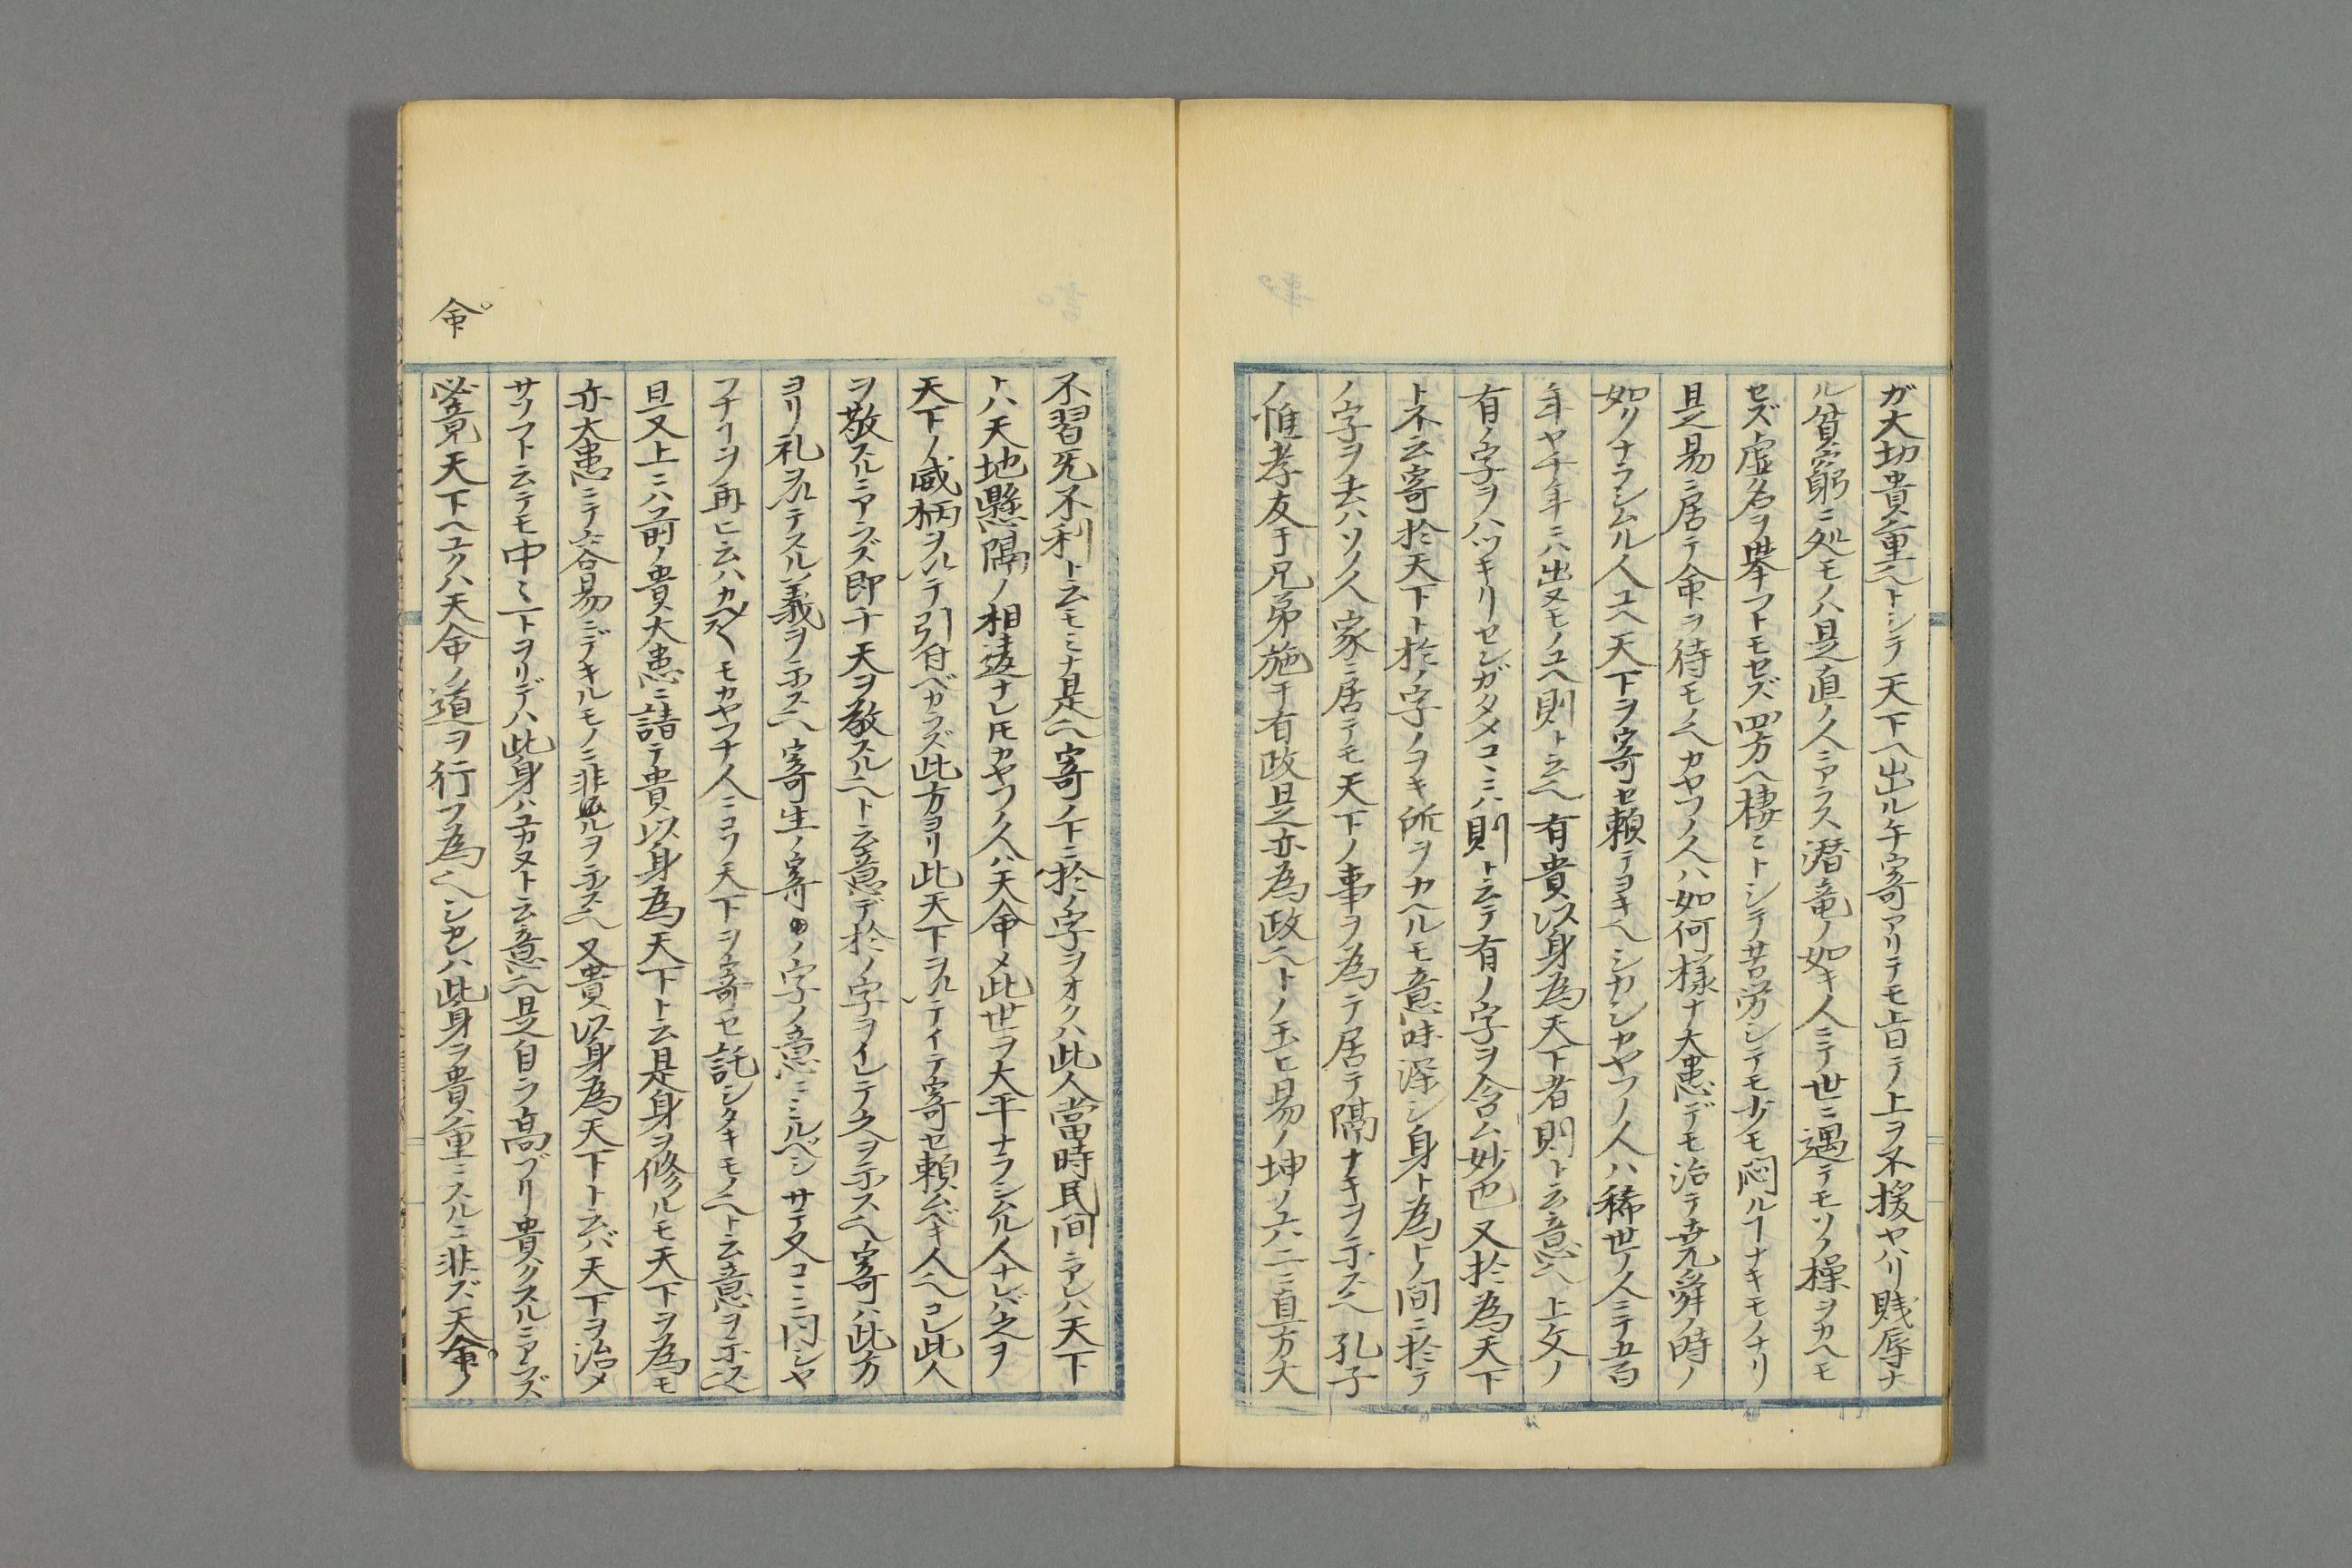 ガ大切貴重ヘトシテ天下ヘ出ル午寄アリテモ上旨テノ上ヲ不援ヤハリ賎辱ナ
ル貧窮ニ処モノハ是直ノ人ニアラス潜竜ノ如キ人ニテ世ニ遇テモソノ操ヲカヘモ
セズ虚名ヲ挙フトモセズ四方ヘ棲ミトシテ苦労シテモ少モ悶ルヿナキモノナリ
是易ニ居テ命ヲ待モノヘカヤフノ人ハ如何様ナ大患デモ治テ尭舜ノ時ノ
如リナラシムル人ユヘ天下ヲ寄セ頼テヨキヘシカシカヤフノ人ハ稀世ノ人ニテ五百
年ヤ千年ニハ出ヌモノユヘ則ト云ヘ有貴以身為天下者則ト云意ヘ上文ノ
有ノ字ヲハツキリセンガタメコヽニハ則ト云テ有ノ字ヲ含ム妙也又於為天下
ト不云寄於天下ト於ノ字ノヲキ所ヲカヘルモ意味深シ身ト為トノ間ニ於テ
ノ字ヲ去ハソノ人家ニ居テモ天下ノ事ヲ為テ居テ隔ナキヲ示スヘ孔子
ノ惟孝友于兄弟施于有政是亦為政ヘトノ玉ヒ易ノ坤ノ六二ニ直方大
不習无不利ト云モミナ是ヘ寄ノ下ニ於ノ字ヲオクハ此人當時民間ニアレハ天下
トハ天地懸隔ノ相違ナレ𪜈カヤフノ人ハ天命メ此世ヲ大平ナラシムル人ナレバ之ヲ
天下ノ威柄ヲ以テ引付ベカラズ此方ヨリ此天下ヲ以テイテ寄セ頼ムベキ人ヘコレ此人
ヲ敬スルニアラズ即チ天ヲ敬スルヘト云意デ於ノ字ヲイレテ之ヲ示スヘ寄ハ此方
ヨリ礼ヲ以テスル義ヲ示スヘ寄生ノ寄ノ字ノ意ニミルベシサテ又コヽニ同シヤ
フナヿヲ再ヒ云ハカヘス〱モカヤフナ人ニコソ天下ヲ寄セ託シタキモノヘト云意ヲ示スヘ
且又上ニハ前ノ貴大患ニ請テ貴以身為天下ト云是身ヲ修ルモ天下ヲ為モ
亦大患ニテ容易ニデキルモノニ非ルヲ示スヘ又貴以身為天下ト云バ天下ヲ治メ
サソフト云テモ中ミ一トヲリデハ此身ハユカヌト云意ヘ是自ラ高ブリ貴ハクスルニアラズ
必竟天下ヘユクハ天命ノ道ヲ行フ為ヘシカレハ此身ヲ貴重ニスルニ非ズ天命ノ
命